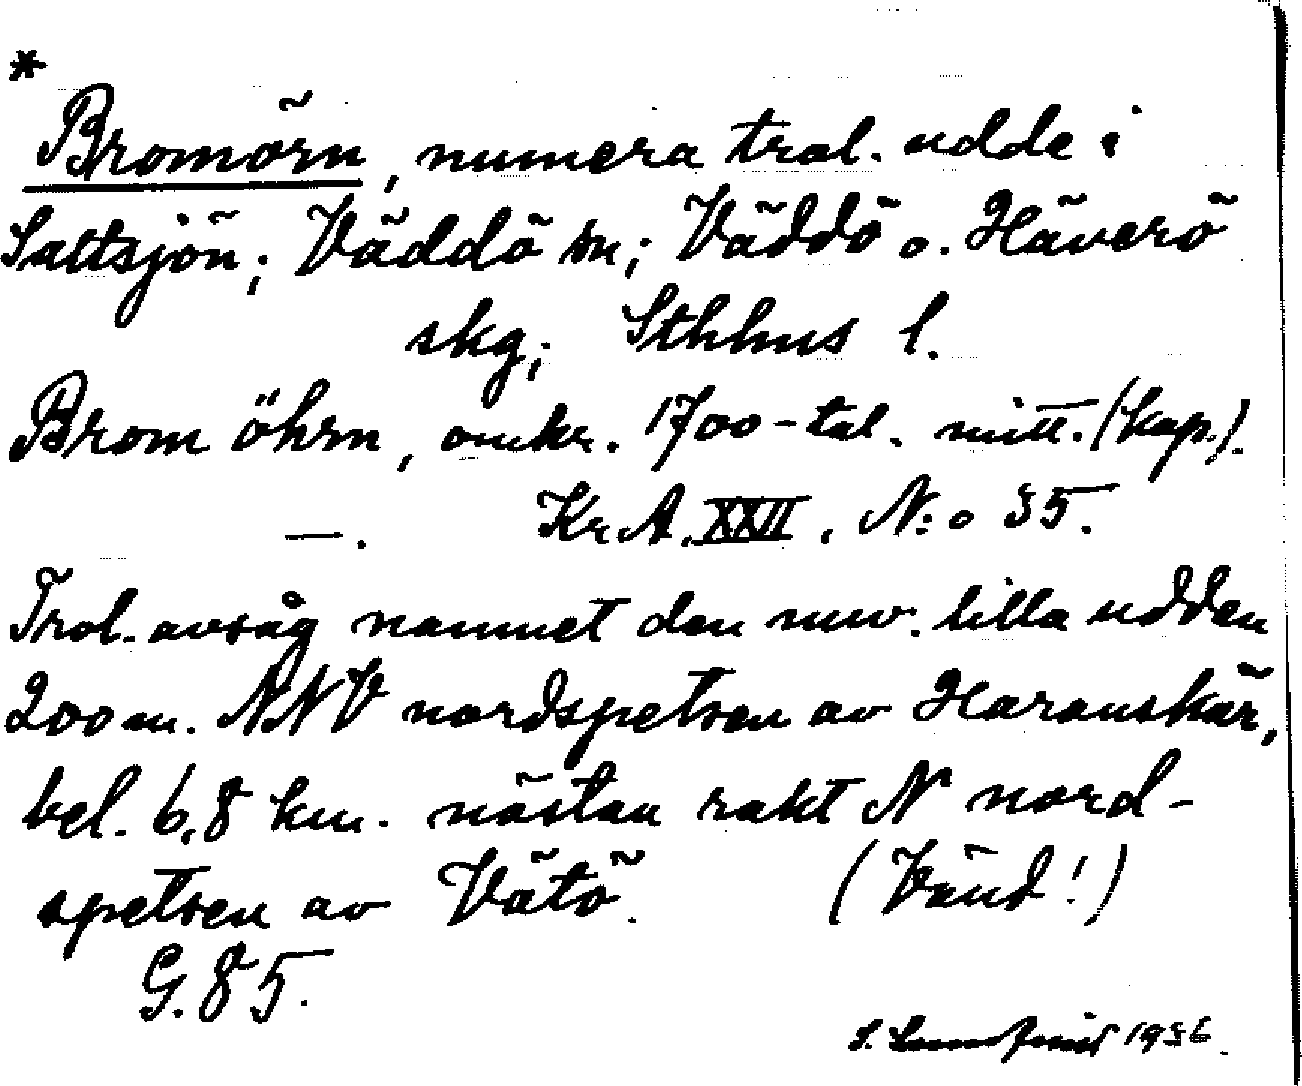 *
Bromörn, numera trol. udde i
Saltsjön; Väddö sn; Väddö o. Häverö
skg; Sthhus l.
Brom öhrn, omkr. 1700-tal. mitt. (kap.).
—. KrA. XXII. N:o 35.
Trol. avsåg namnet den nuv. lilla udden
200 m. NNV nordspetsen av Haranskär,
bel. 6,8 km. nästan rakt N nord-
spetsen av Vätö. (Vänd!)
G. 85.
S. 1936.